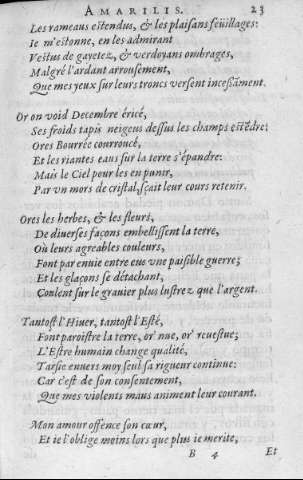 AMARILIS. 23
Les rameaus estendus, & les plaisans feüillages:
Ie m'estonne, en les admirant
Vestus de gayetez, & verdoyans ombrages,
Malgré l'ardant arrousement,
Que mes yeux sur leurs troncs versent incessãment.
Or on void Decembre éricé,
Ses froids tapis neigeus dessus les champs estẽdre;
Ores Bourrée courroucé,
Et les riantes eaus sur la terre s'épandre:
Mais le Ciel pour les en punir,
Par vn mors de cristal, sçait leur cours retenir.
Ores les herbes, & les fleurs,
De diuerses façons embellissent la terre,
Où leurs agreables couleurs,
Font par enuie entre eus vne paisible guerre;
Et les glaçons se détachant,
Coulent sur le grauier plus lustrez que l'argent.
Tantost l'Hiuer, tantost l'Esté,
Font paroistre la terre, or' nue, or' reuestue;
L'Estre humain change qualité,
Tarsie enuers moy seul sa rigueur continue:
Car c'est de son consentement,
Que mes violents maus animent leur courant.
Mon amour offence son cœur,
Et ie l'oblige moins lors que plus ie merite,
B 4 Et